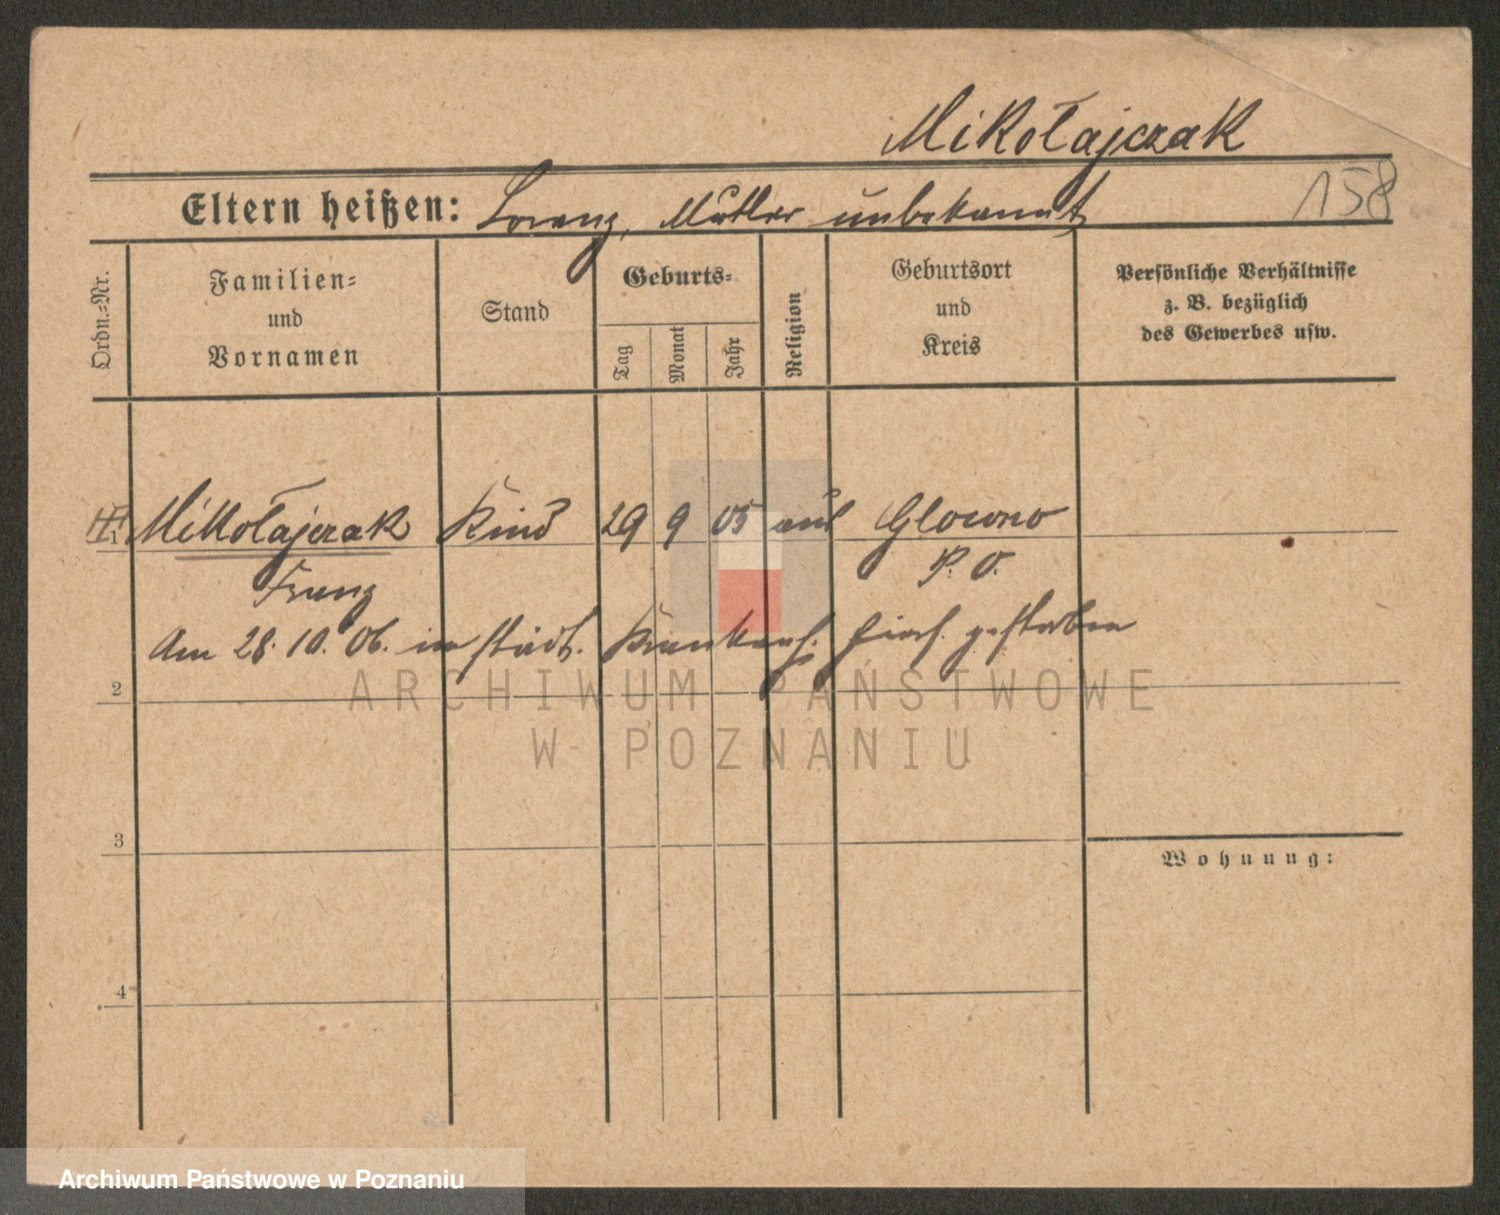 Mikołajczak
158
Eltern heißen: Lorenz, Mutter unbekannt
Ordn.=Nr.
Familien=
und
Vornamen
Stand
Geburts=
Tag
Monat
Jahr
Religion
Geburtsort
und
Kreis
Persönliche Verhältnisse
z. B. bezüglich
des Gewerbes usw.
1
Mikołajczak Kind 29 9 05 Glowno
Franz P. O.
Am 28. 10. 06. im städt. Krankenh. hier gestorben
2
ARCHIWUM PAŃSTWOWE
W POZNANIU
3
Wohnung:
4
Archiwum Państwowe w Poznaniu